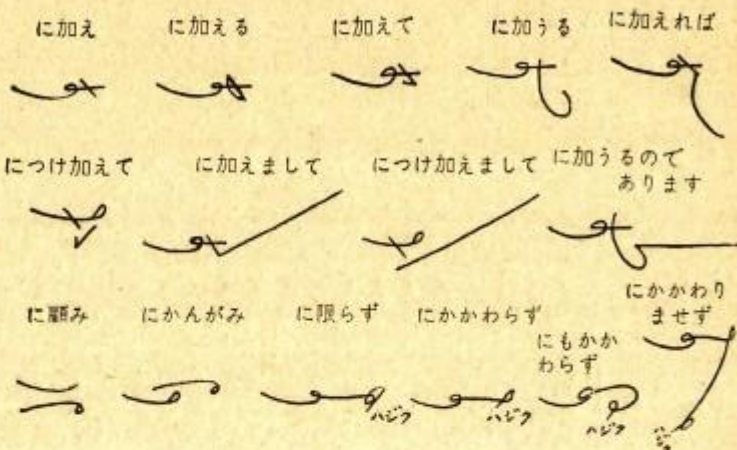 に加え に加える に加えて に加うる に加えれば
につけ加えて に加えまして につけ加えまして に加うるので
あります
に顧み にかんがみ に限らず にかかわらず にもかか
わらず にかかわり
ませず
ハジク ハジク ハジク ハジク